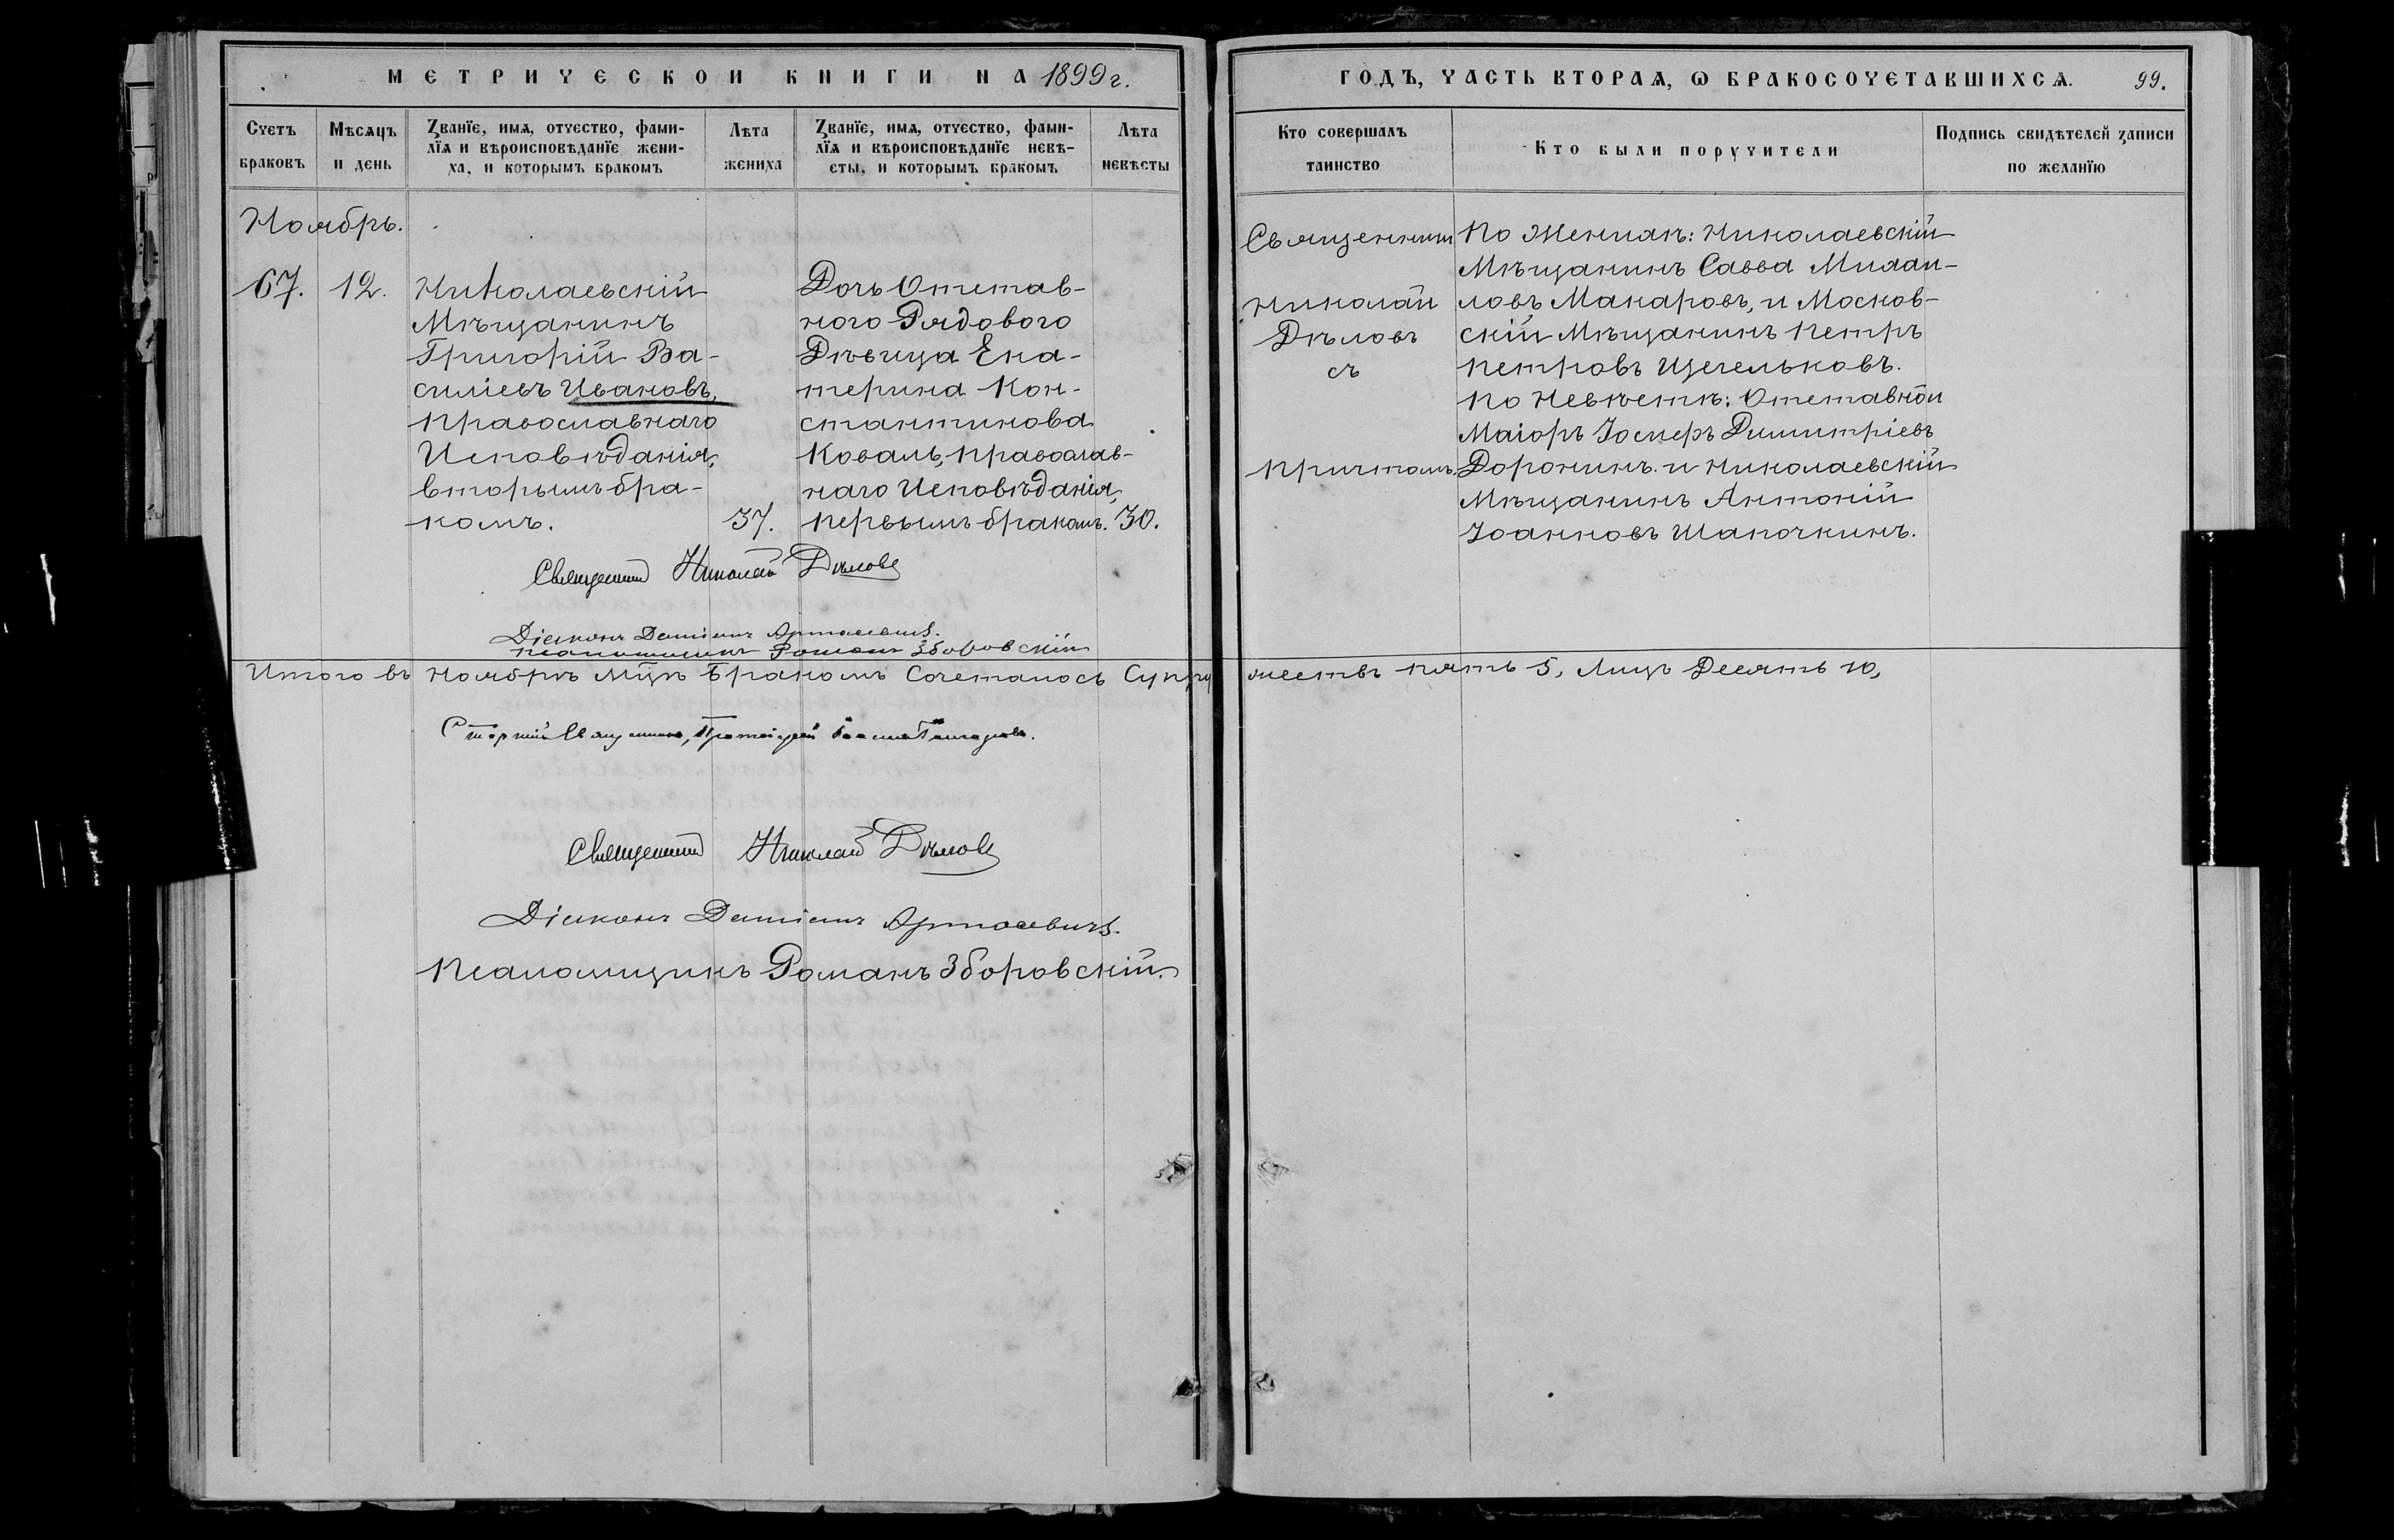 МЕТРИЧЕСКОЙ КНИГИ НА 1899 г.
Счетъ браковъ
Мѣсяцъ и день
Званїе, имѧ, отчество, фами-
лїѧ и вѣроисповѣданїе жени-
ха, и которымъ бракомъ
Лѣта жениха
Званїе, имѧ, отчество, фами-
лїѧ и вѣроисповѣданїе невѣ-
сты, и которымъ бракомъ
Лѣта невѣсты
Ноябрь.
67. 12.
Николаевскій
Мѣщанинъ
Григорій Ва-
силіевъ Ивановъ,
Православнаго
Исповѣданія,
вторымъ бра-
комъ. 37.
Дочь Отстав-
ного Рядового
Дѣвица Ека-
терина Кон-
стантинова
Коваль, Православ-
наго Исповѣданія,
первымъ бракомъ. 30.
Священникъ Николай Дѣловъ
Діаконъ Даміанъ
Псаломщикъ Романъ Зборовскій
Итого въ Ноябрѣ Мцѣ Бракомъ Сочеталось Супру
Священникъ Николай Дѣловъ
Діаконъ Даміанъ
Псаломщикъ Романъ Зборовскій.
ГОДЪ, ЧАСТЬ ВТОРАѦ, Ѡ БРАКОСОЧЕТАВШИХСѦ. 99.
Кто совершалъ таинство
Кто были поручители
Подпись свидѣтелей записи по желанїю
Священникъ
Николай
Дѣловъ
съ
Причтомъ.
По Женихѣ: Николаевскій
Мѣщанинъ Савва
Макаровъ, и Москов-
скій Мѣщанинъ Петръ
Петровъ Щегельковъ.
По Невѣстѣ: Отставной
Маіоръ Димитріевъ
Доронинъ и Николаевскій
Мѣщанинъ Антоній
Іоанновъ Шапочкинъ.
жествъ пять 5, Лицъ Десять 10,